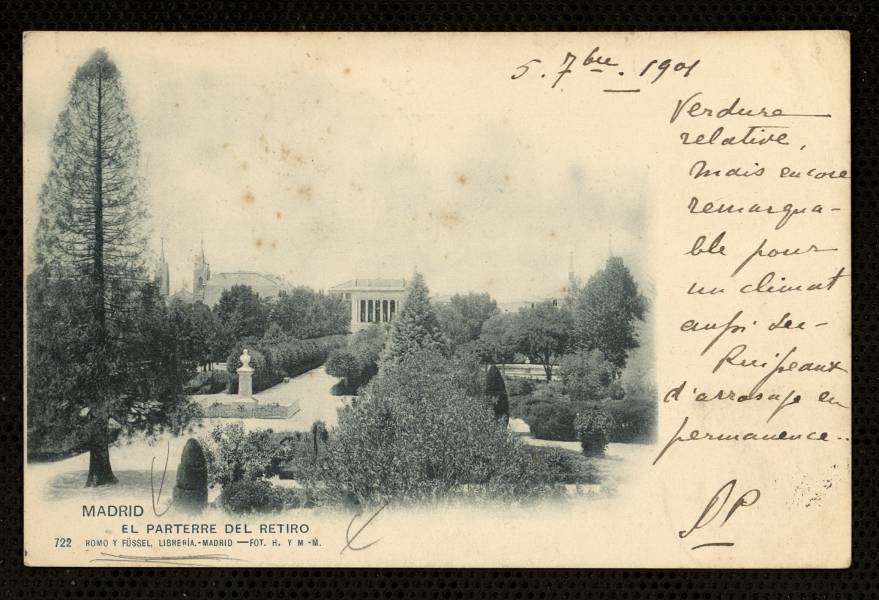 5. 7bre. 1901
Verdure
relative,
mais encore
remarqua-
ble pour
un climat
aussi sec-
Ruisseaux
d'arrosage en
permanence..
DP
MADRID
EL PARTERRE DEL RETIRO
722 ROMO Y FÜSSEL, LIBRERÍA.-MADRID —FOT. H. Y M -M.